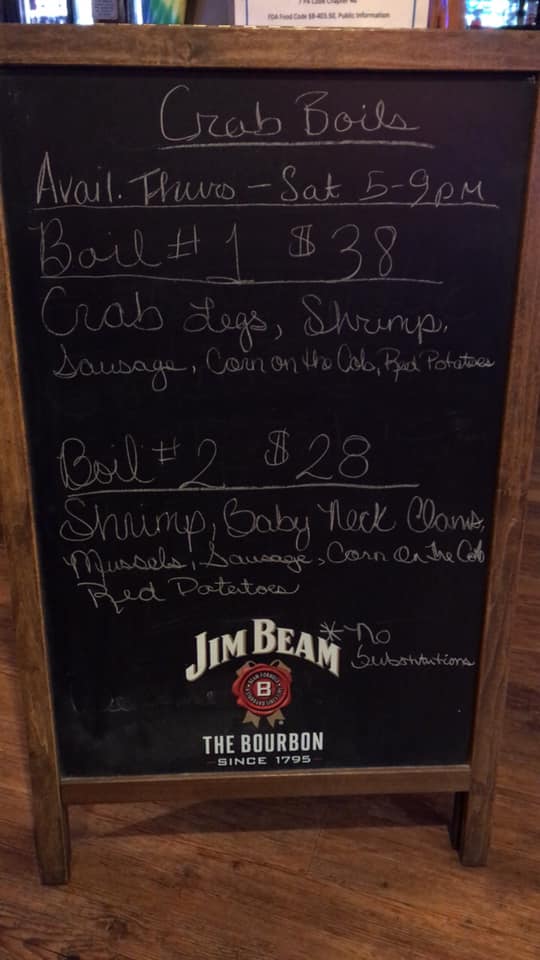 7 PA Code Chapter 46
FDA Food Code §8-403.50, Public Information
Crab Boils
Avail. Thurs - Sat 5-9pm
Boil # 1 $38
Crab Legs, Shrimp,
Sausage, Corn on the Cob, Red Potatoes
Boil # 2 $28
Shrimp, Baby Neck Clams,
Mussels, Sausage, Corn on the Cob
Red Potatoes
*No
Substitutions
JIM BEAM
B
THE BOURBON
SINCE 1795